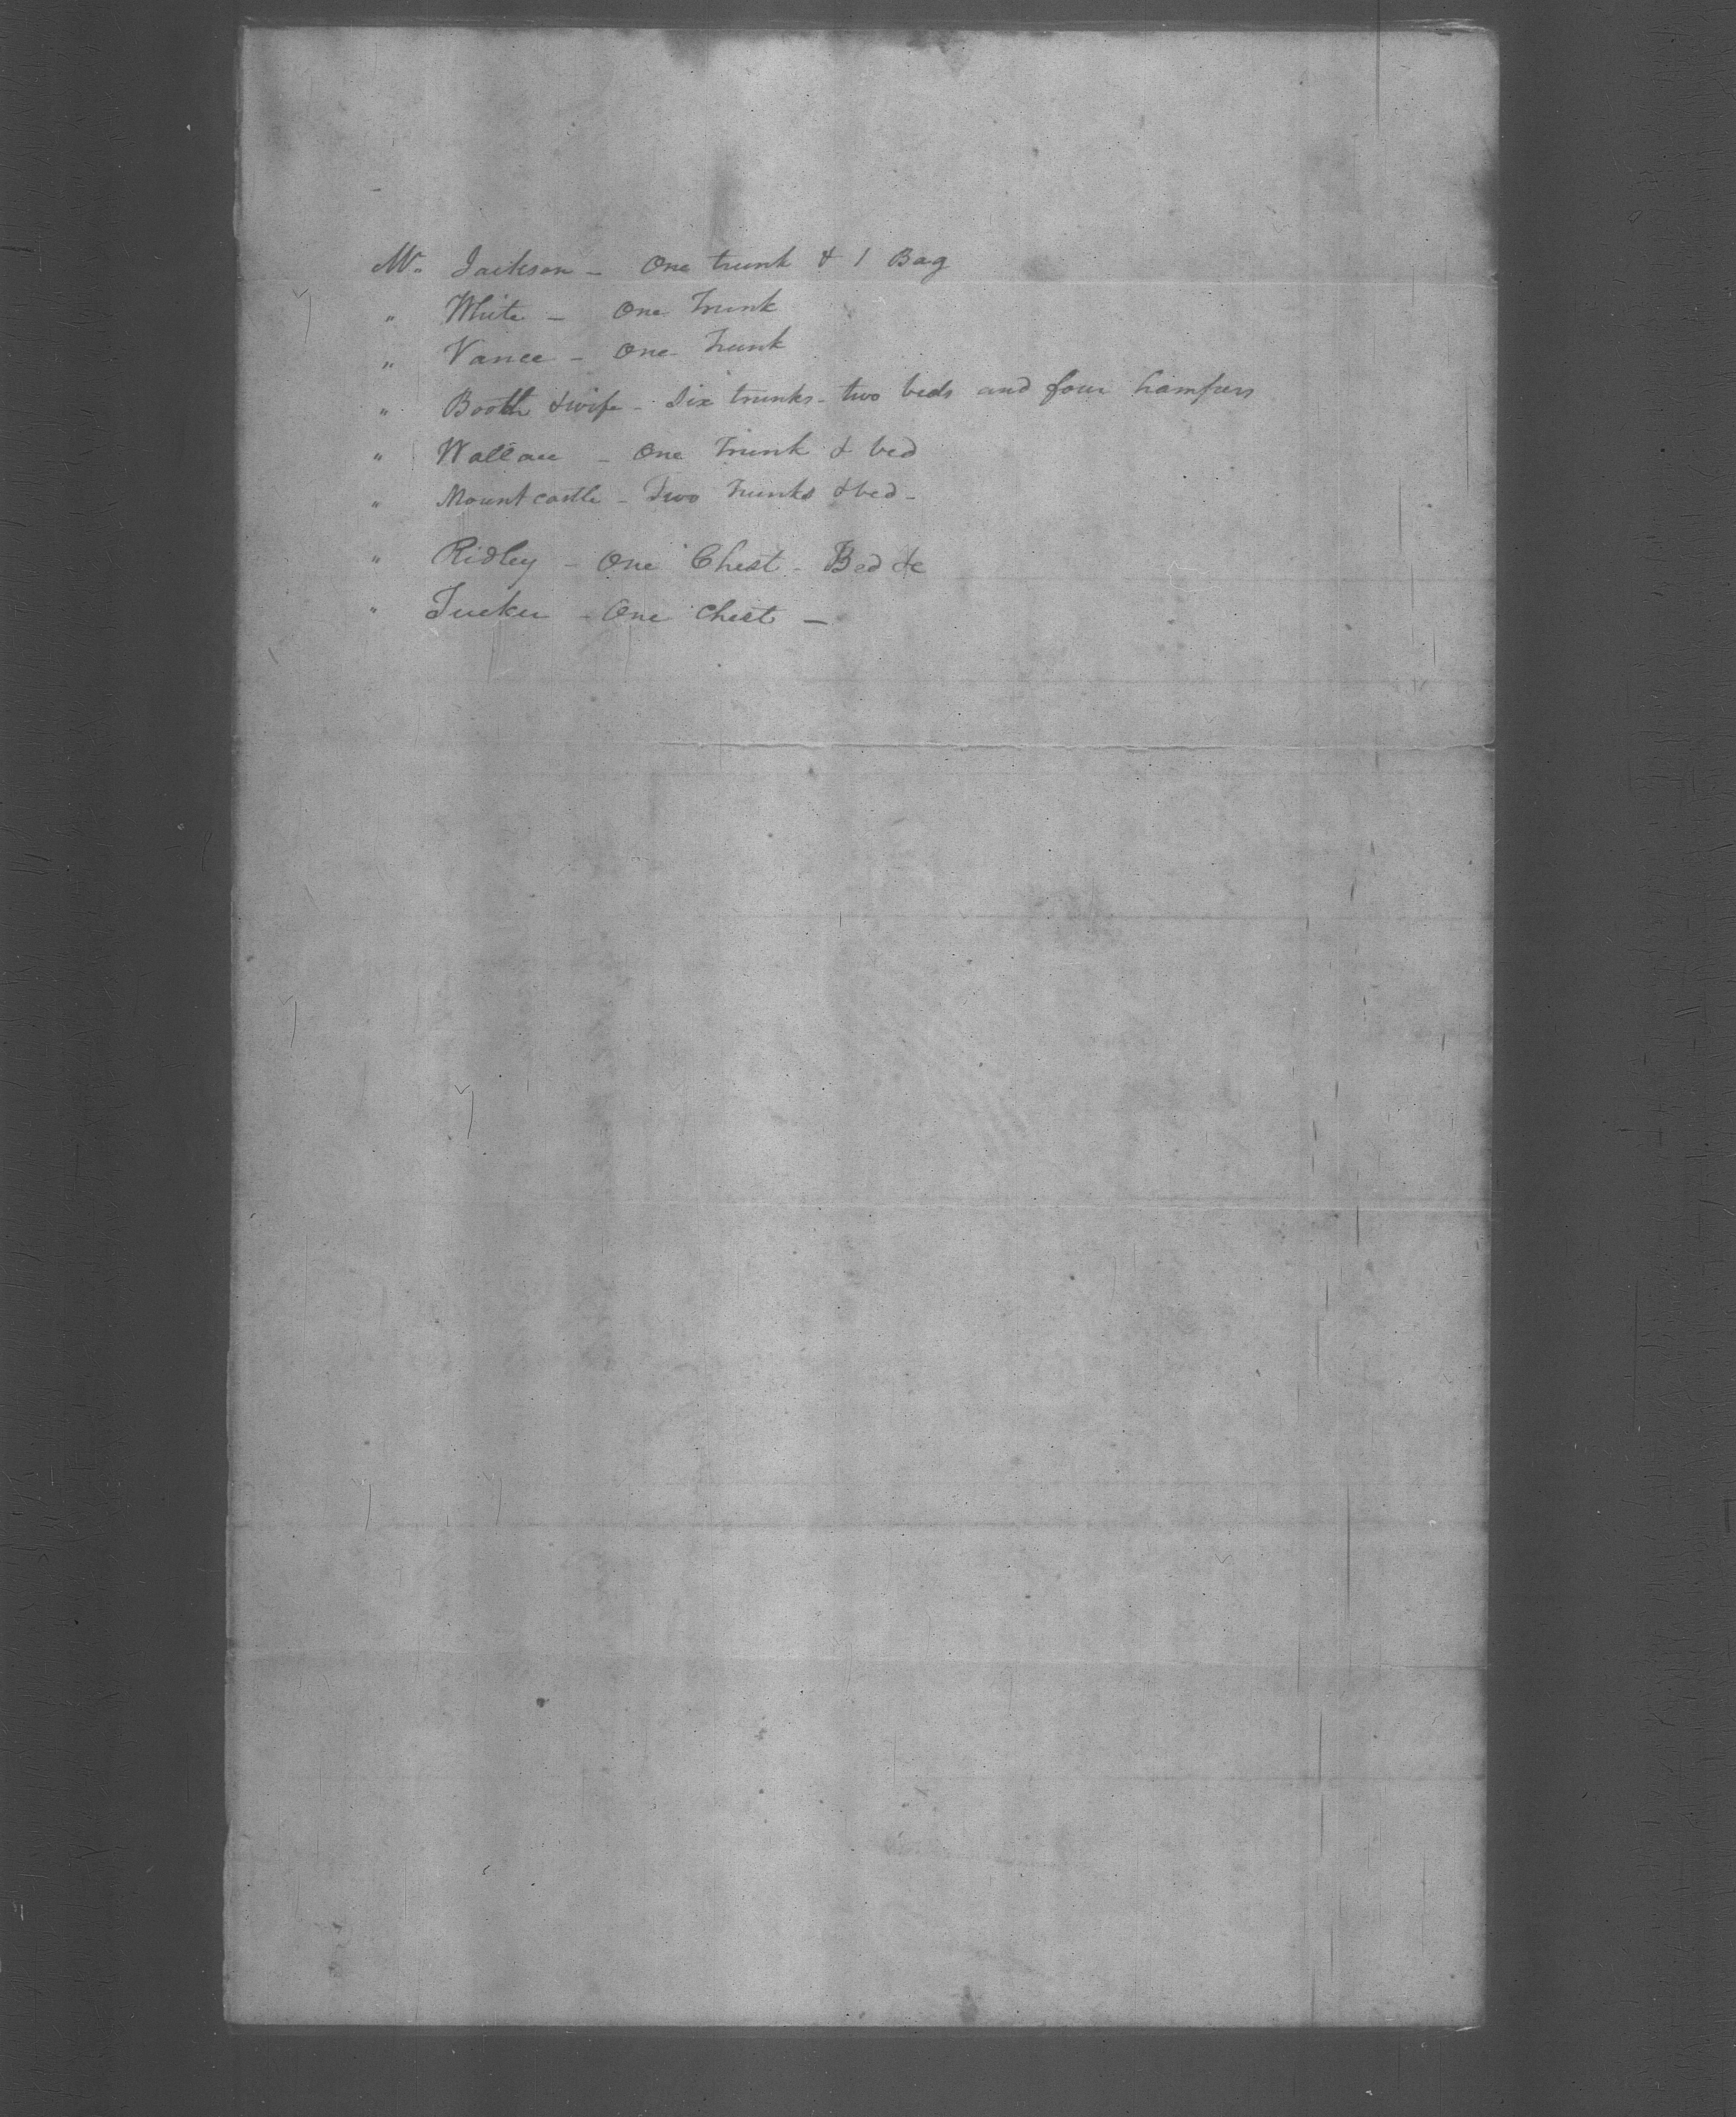 Mr. Jackson - One trunk & 1 Bag
" White - One Trunk
" Vance - One Trunk
" Booth & wife - Six trunks - two beds and four hampers
" Wallace - One Trunk & bed
" Mountcastle - Two Trunks & bed -
" Ridley - One Chest - Bed &c
" Tucker - One Chest -